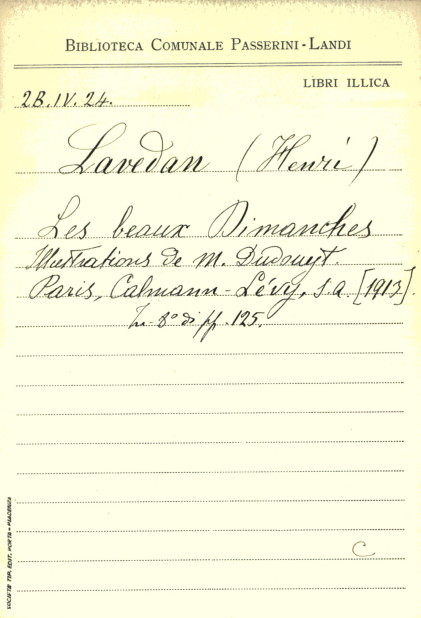 BIBLIOTECA COMUNALE PASSERINI-LANDI
LIBRI ILLICA
2B.IV.24.
Lavedan (Henri)
Les beaux Dimanches
Illustrations de M. Dudouyt.
Paris, Calmann-Lévy, s.a. [1913].
In-8° di pp. 125.
C
SOCIETÀ TIP. EDIT. PORTA - PIACENZA